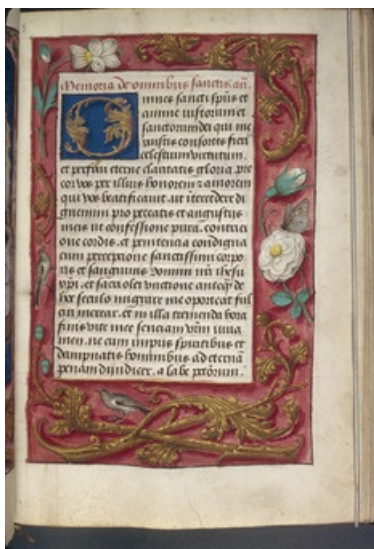 Memoria de omnibus sanctis. an.
Omnes sancti spũs et
anime iustorum et
sanctorum dei qui me
consortes fieri
celestium virtutum.
et perfrui eterne claritatis gloria pre
cor vos per illius honorem & amorem
qui vos beatificavit ut itercedere di
gnemini pro peccatis et angustiis
meis ut confessione pura. contrici
one cordis. et penitencia condigna
cum perceptione sanctissimi corpo
ris et sanguinis domini nrĩ ihesu
xpĩ. et sacra olei unctione anteq̃ de
hoc seculo migrare me oporteat ful
ciri merear. et in illa tremenda hora
finis vite mee senciam vrm iuva
men. ne cum impiis spiritibus et
dampnatis hominibus ad eternã
penam diiudicer. a labe pctõrum.